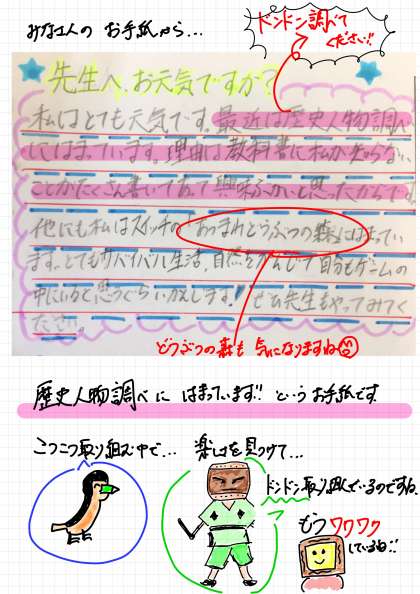 みなさんの お手紙から...
ドンドン調べて
ください!!
先生へ お元気ですか?
私はとても元気です。最近は歴史人物調べ
にはまっています。理由は教科書に私が知らない
ことがたくさん書いてあって興味ぶかいと思ったからです。
他にも私はスイッチの「あつまれどうぶつの森」にはまってい
ます。とてもサバイバル生活、自然を
自分もゲームの
中にいると思うぐらい
ぜひ先生もやってみてく
ださい。
どうぶつの森も 気になりますね
歴史人物調べに はまっています!! というお手紙です
こつこつ取り組む中で...
楽しさを見つけて...
ドンドン取り組んでいるのですね
もうワクワク
しているね!!